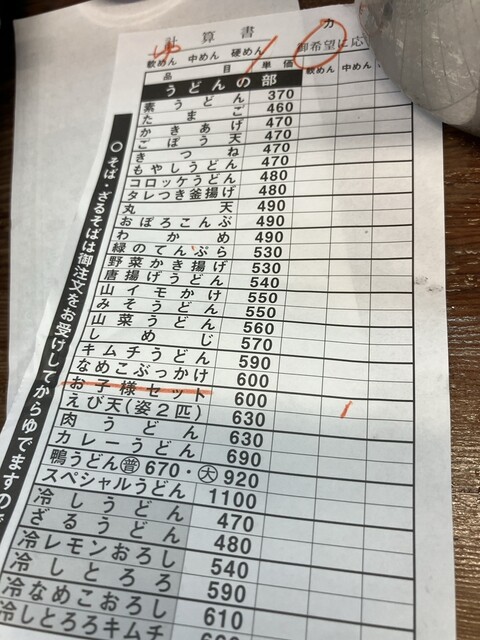 計算書
ゆ
カ
軟めん 中めん 硬めん
御希望に応
品目 単価 軟めん 中めん
うどんの部
素うどん 370
たまご 460
かきあげ 470
ごぼう天 470
きつね 470
もやしうどん 470
コロッケうどん 480
タレつき釜揚げ 480
丸天 490
おぼろこんぶ 490
わかめ 490
緑のてんぷら 530
野菜かき揚げ 530
唐揚げうどん 540
山イモかけ 550
みそうどん 550
山菜うどん 560
しめじ 570
キムチうどん 590
なめこぶっかけ 600
お子様セット 600
えび天(姿2匹) 630
肉うどん 630
カレーうどん 690
鴨うどん㊪670・㊛920
スペシャルうどん 1100
冷しうどん 470
ざるうどん 480
冷レモンおろし 540
冷しとろろ 590
冷なめこおろし 610
冷しとろろキムチ
○そば・ざるそばは御注文をお受けしてからゆでますので